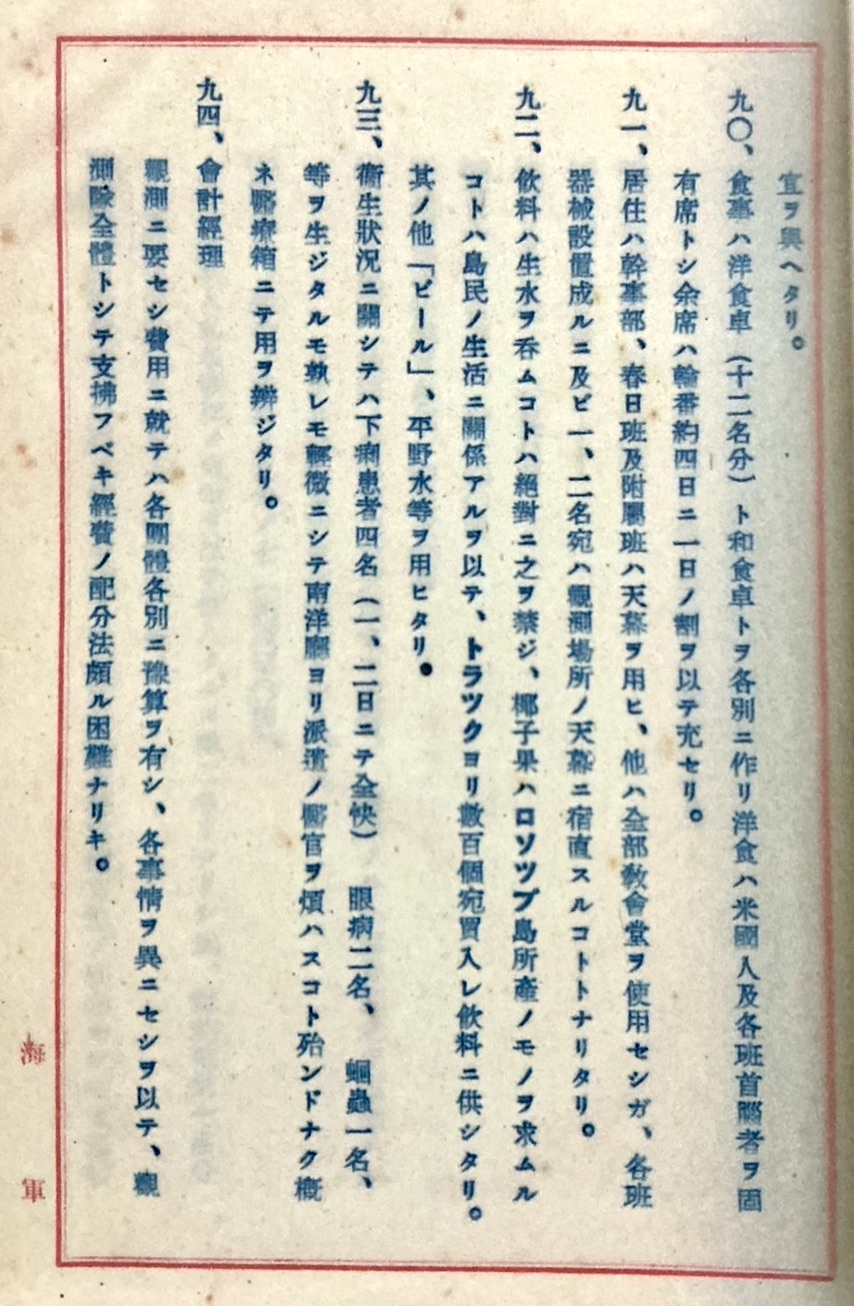 宜ヲ與ヘタリ。
九〇、食事ハ洋食卓（十二名分）ト和食卓トヲ各別ニ作リ洋食ハ米國人及各班首腦者ヲ固
有席トシ余席ハ輪番約四日ニ一日ノ割ヲ以テ充セリ。
九一、居住ハ幹事部、春日班及附屬班ハ天幕ヲ用ヒ、他ハ全部教會堂ヲ使用セシガ、各班
器械設置成ルニ及ビ一、二名宛ハ觀測場所ノ天幕ニ宿直スルコトトナリタリ。
九二、飲料ハ生水ヲ呑ムコトハ絕對ニ之ヲ禁ジ、椰子果ハロソツプ島所產ノモノヲ求ムル
コトハ島民ノ生活ニ關係アルヲ以テ、トラツクヨリ數百個宛買入レ飲料ニ供シタリ。
其ノ他「ビール」、平野水等ヲ用ヒタリ。
九三、衞生狀況ニ關シテハ下痢患者四名（一、二日ニテ全快）　眼病二名、　蛔蟲一名、
等ヲ生ジタルモ孰レモ輕微ニシテ南洋廳ヨリ派遣ノ醫官ヲ煩ハスコト殆ンドナク概
ネ醫療箱ニテ用ヲ辨ジタリ。
九四、會計經理
觀測ニ要セシ費用ニ就テハ各團體各別ニ豫算ヲ有シ、各事情ヲ異ニセシヲ以テ、觀
測隊全體トシテ支拂フベキ經費ノ配分法頗ル困難ナリキ。
海軍